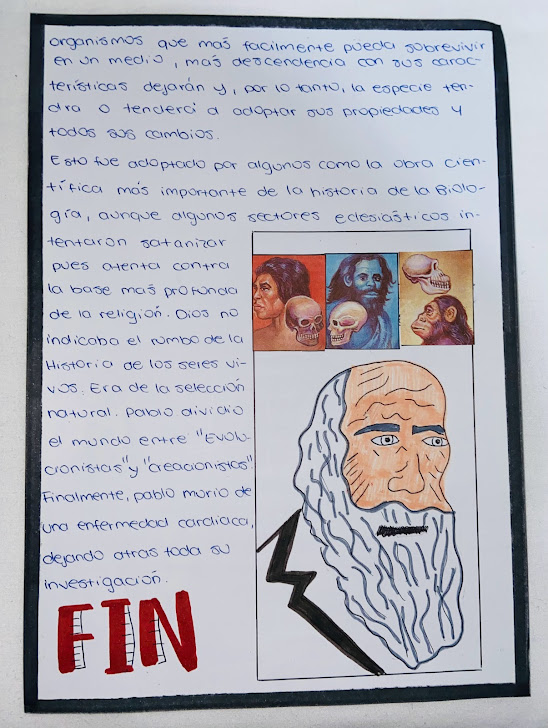 organismos que mas facilmente pueda sobrevivir
en un medio, mas descendencia con sus carac-
terísticas dejarán y, por lo tanto, la especie ten-
dra o tenderá a adoptar sus propiedades y
todos sus cambios.
Esto fue adoptado por algunos como la obra cien-
tífica más importante de la historia de la Biolo-
gía, aunque algunos sectores eclesiásticos in-
tentaron satanizar
pues atenta contra
la base mas profunda
de la religión. Dios no
indicaba el rumbo de la
Historia de los seres vi-
vos. Era de la selección
natural. Pablo dividio
el mundo entre "Evolu-
cionistas" y "creacionistas".
Finalmente, pablo murio de
una enfermedad cardiaca,
dejando atras toda su
investigación.
FIN